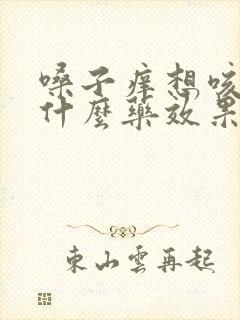 嗓子痒想咳
什麼藥效果
東山雲再起